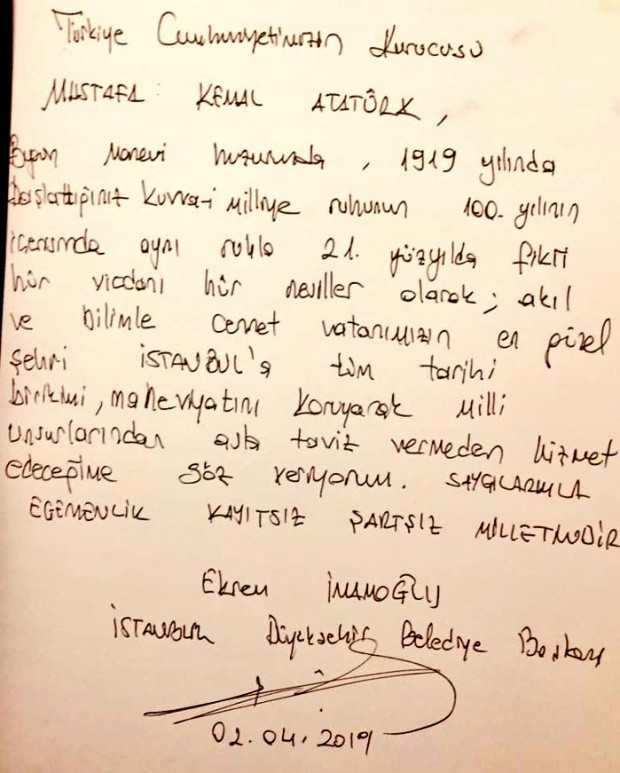 Türkiye Cumhuriyeti'mizin Kurucusu
MUSTAFA KEMAL ATATÜRK,
Bugün Manevi huzurunuzda, 1919 yılında
başlattığınız Kuvva-i Milliye ruhunun 100. yılının
içerisinde aynı ruhla 21. yüzyılda fikri
hür vicdanı hür nesiller olarak; akıl
ve bilimle cennet vatanımızın en güzel
şehri İSTANBUL'a tüm tarihi
birikimi, maneviyatını koruyarak Milli
unsurlarından asla taviz vermeden hizmet
edeceğime söz veriyorum. SAYGILARIMLA
EGEMENLİK KAYITSIZ ŞARTSIZ MİLLETİNDİR
Ekrem İMAMOĞLU
İSTANBUL Büyükşehir Belediye Başkanı
02.04.2019